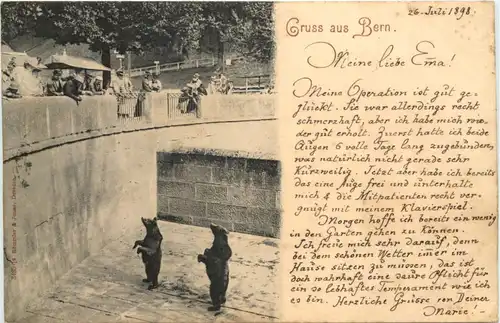 26. Juli 1898.
Gruss aus Bern.
Meine liebe Ema!
Meine Operation ist gut ge-
glückt. Sie war allerdings recht
schmerzhaft, aber ich habe mich wie-
der gut erholt. Zuerst hatte ich beide
Augen 6 volle Tage lang zugebunden,
was natürlich nicht gerade sehr
kurzweilig. Jetzt aber habe ich bereits
das eine Auge frei und unterhalte
mich & die Mitpatienten recht ver-
gnügt mit meinem Klavierspiel.
Morgen hoffe ich bereits ein wenig
in den Garten gehen zu können.
Ich freue mich sehr darauf, denn
bei dem schönen Wetter immer im
Hause sitzen zu müssen, das ist
doch wahrhaft eine Pflicht für
ein so lebhaftes Temperament wie ich
es bin. Herzliche Grüsse von Deiner
Marie.